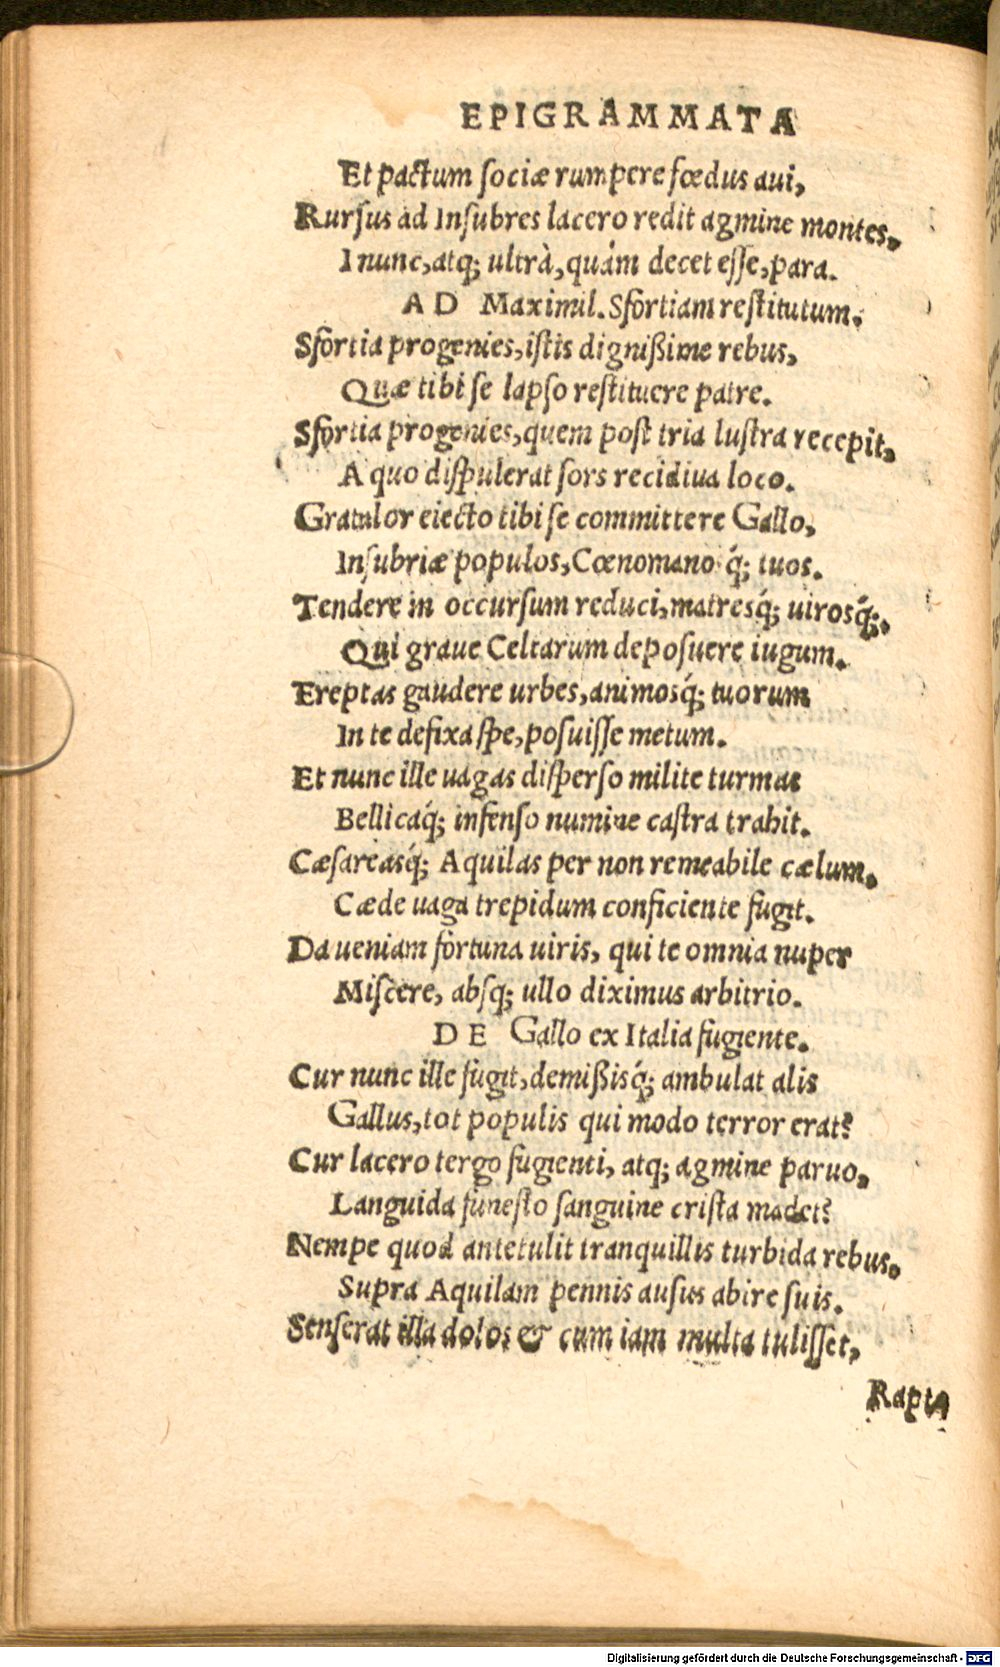 EPIGRAMMATA
Et pactum sociæ rumpere fœdus aui,
Rursus ad Insubres lacero redit agmine montes,
I nunc, atq; ultrà, quám decet esse, para.
AD Maximil. Sfortiam restitutum.
Sfortia progenies, istis dignißime rebus,
Quæ tibi se lapso restituere patre.
Sfortia progenies, quem post tria lustra recepit,
A quo dispulerat sors recidiua loco.
Gratulor eiecto tibi se committere Gallo,
Insubriæ populos, Cœnomano q́; tuos.
Tendere in occursum reduci, matresq́; uirosq́;,
Qui graue Celtarum deposuere iugum.
Ereptas gaudere urbes, animosq́; tuorum
In te defixa spe, posuisse metum.
Et nunc ille uagas disperso milite turmas
Bellicaq́; infenso numine castra trahit.
Cæsareasq́; Aquilas per non remeabile cælum,
Cæde uaga trepidum conficiente fugit.
Da ueniam fortuna uiris, qui te omnia nuper
Miscere, absq; ullo diximus arbitrio.
DE Gallo ex Italia fugiente.
Cur nunc ille fugit, demißisq́; ambulat alis
Gallus, tot populis qui modo terror erat?
Cur lacero tergo fugienti, atq; agmine paruo,
Languida funesto sanguine crista madet?
Nempe quod antetulit tranquillis turbida rebus,
Supra Aquilam pennis ausus abire suis.
Senserat illa dolos & cum iam multa tulisset,
Rapta
Digitalisierung gefördert durch die Deutsche Forschungsgemeinschaft - DFG